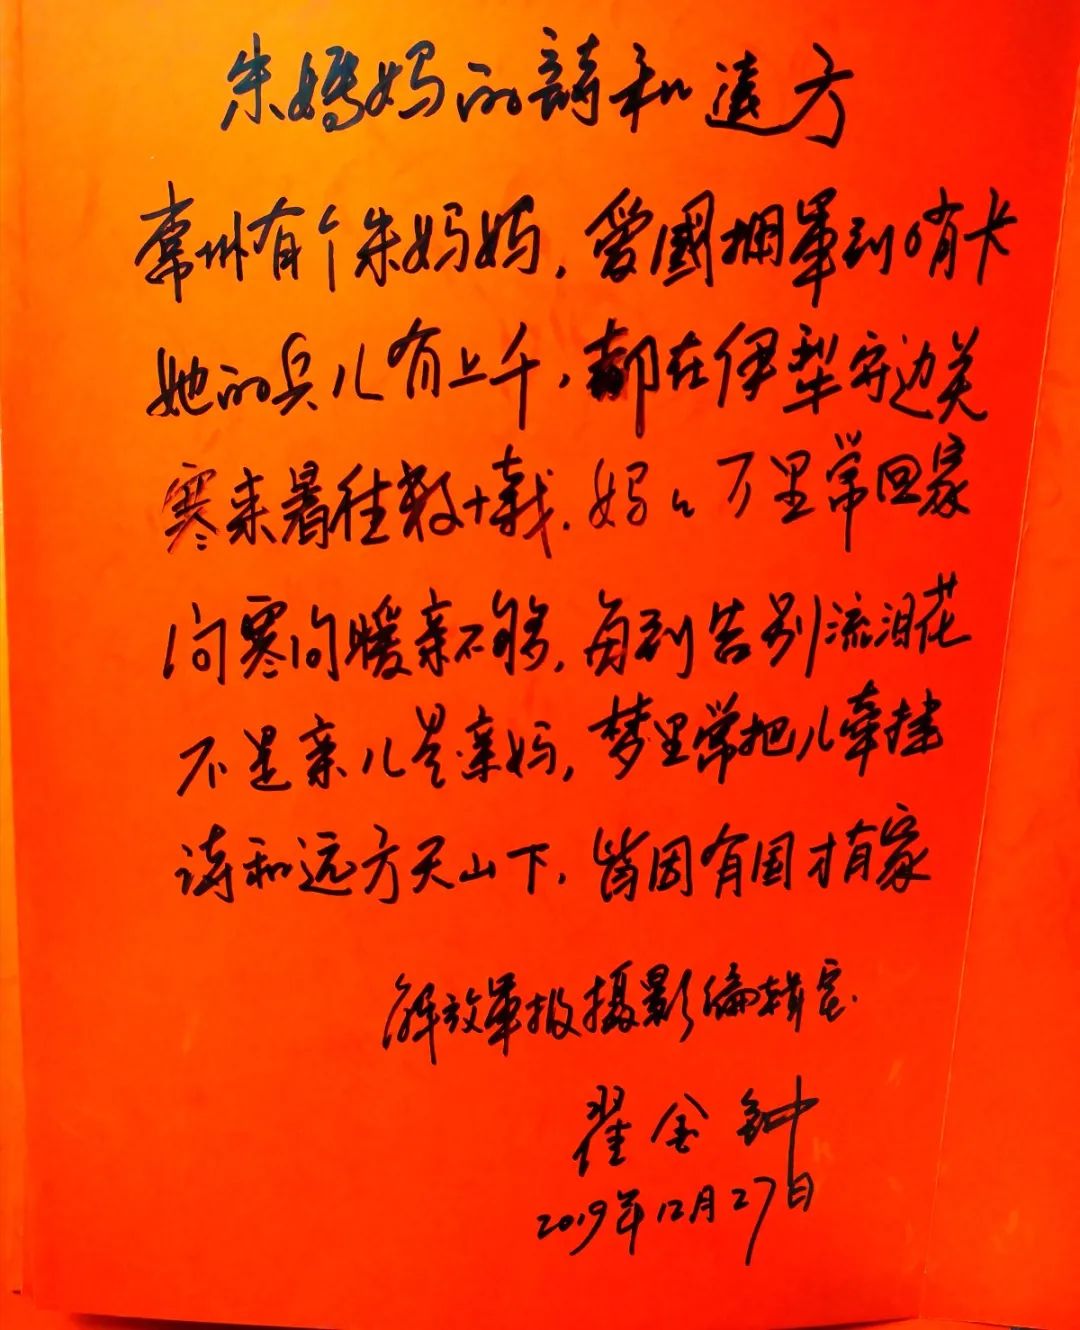 朱媽妈的詩和遠方
常州有个朱妈妈，爱國拥軍到哨卡
她的兵儿有上千，都在伊犁守边关
寒来暑往数十载，妈々万里常回家
问寒问暖亲不够，每到告别流泪花
不是亲儿是亲妈，梦里常把儿牵挂
诗和远方天山下，皆因有国才有家
解放軍报摄影编辑室
翟金钟
2019年12月27日